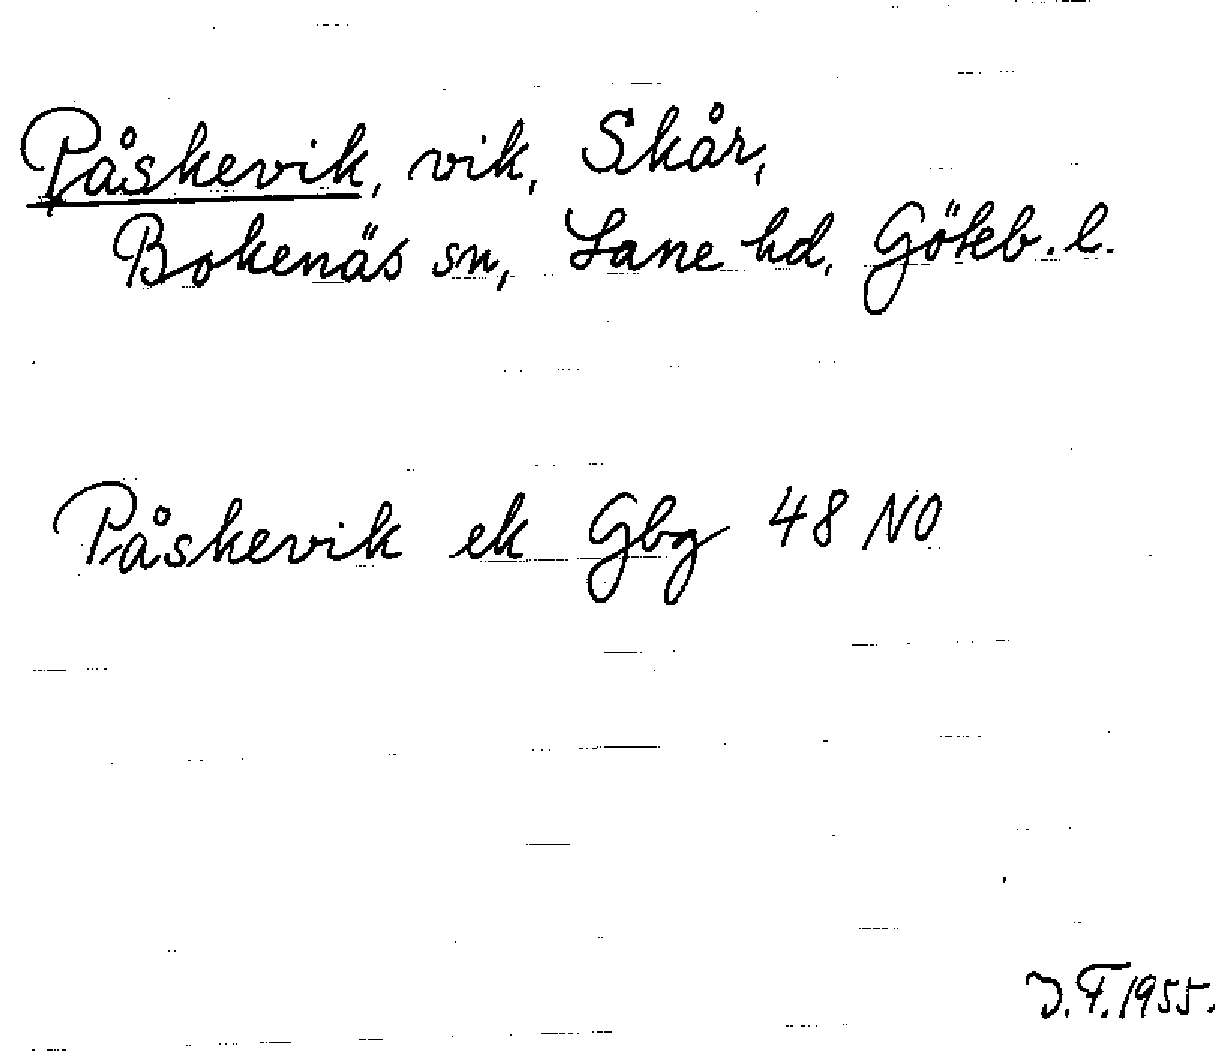 Påskevik, vik, Skår,
Bokenäs sn, Lane hd, Göteb. l.
Påskevik ek Gbg 48 NO
J.F. 1955.